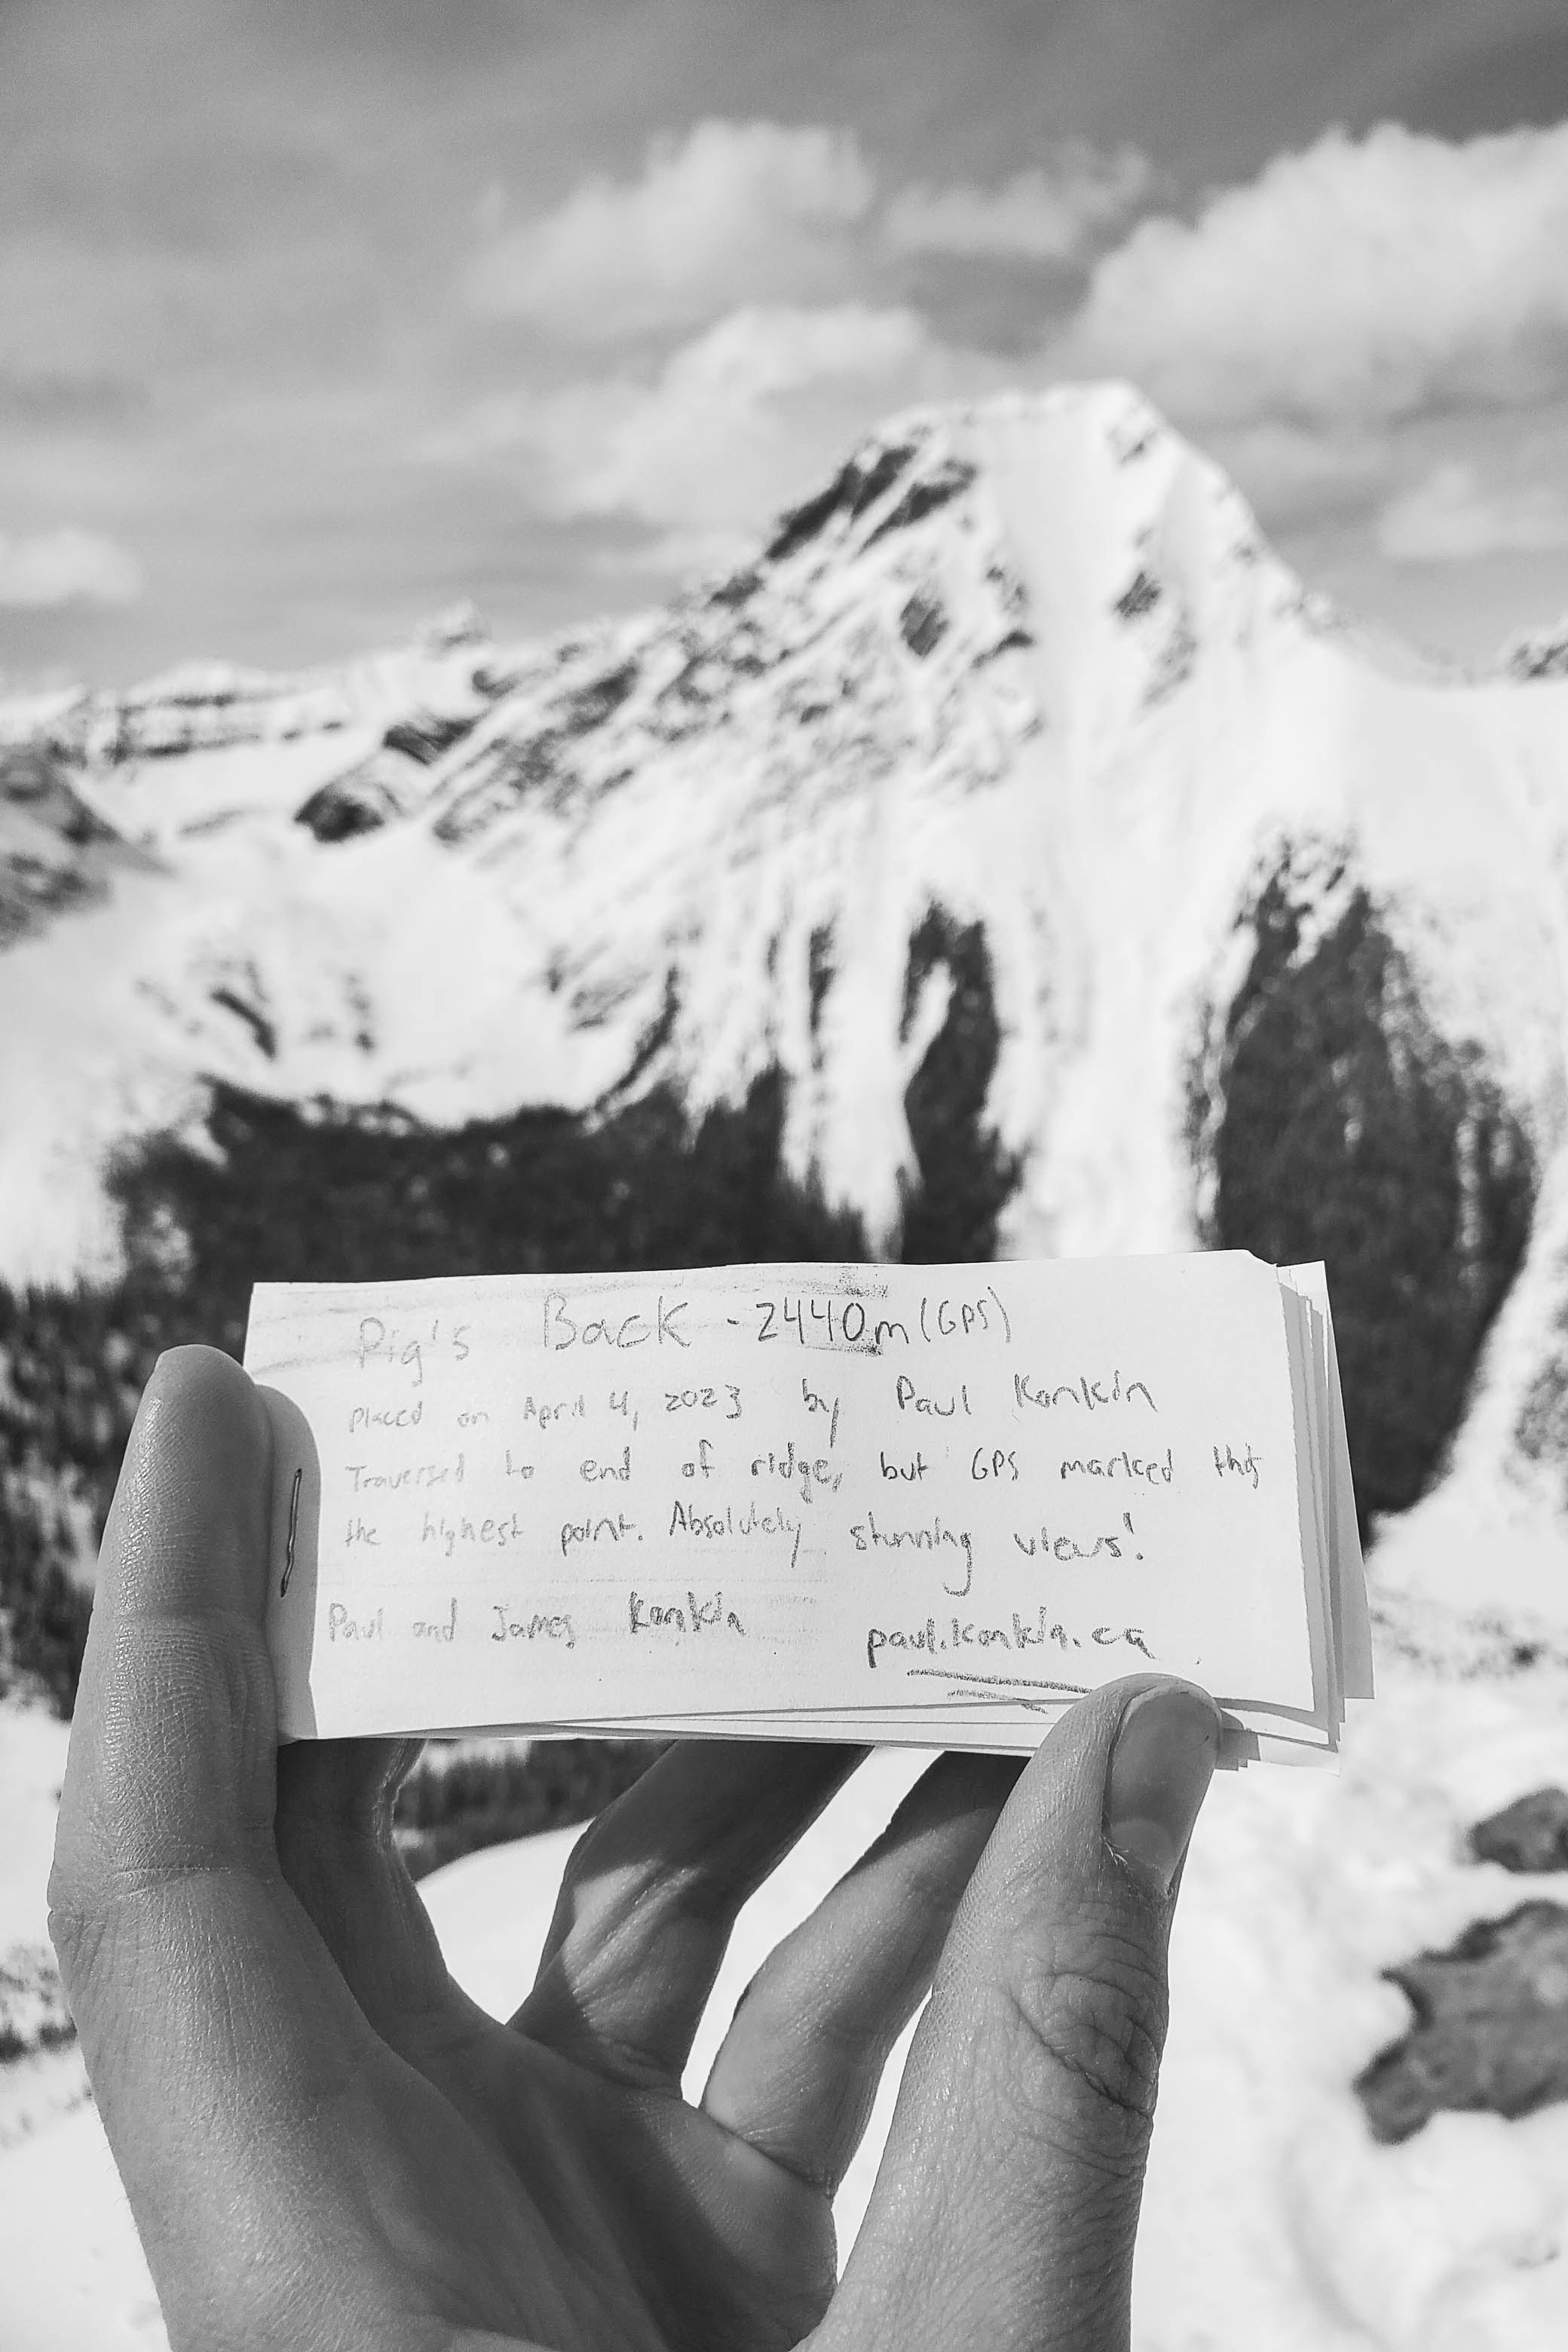 Pig's Back - 2440m (GPS)
placed on April 4, 2023 by Paul Konkin
Traversed to end of ridge, but GPS marked this
the highest point. Absolutely stunning views!
Paul and James Konkin paul.konkin.ca